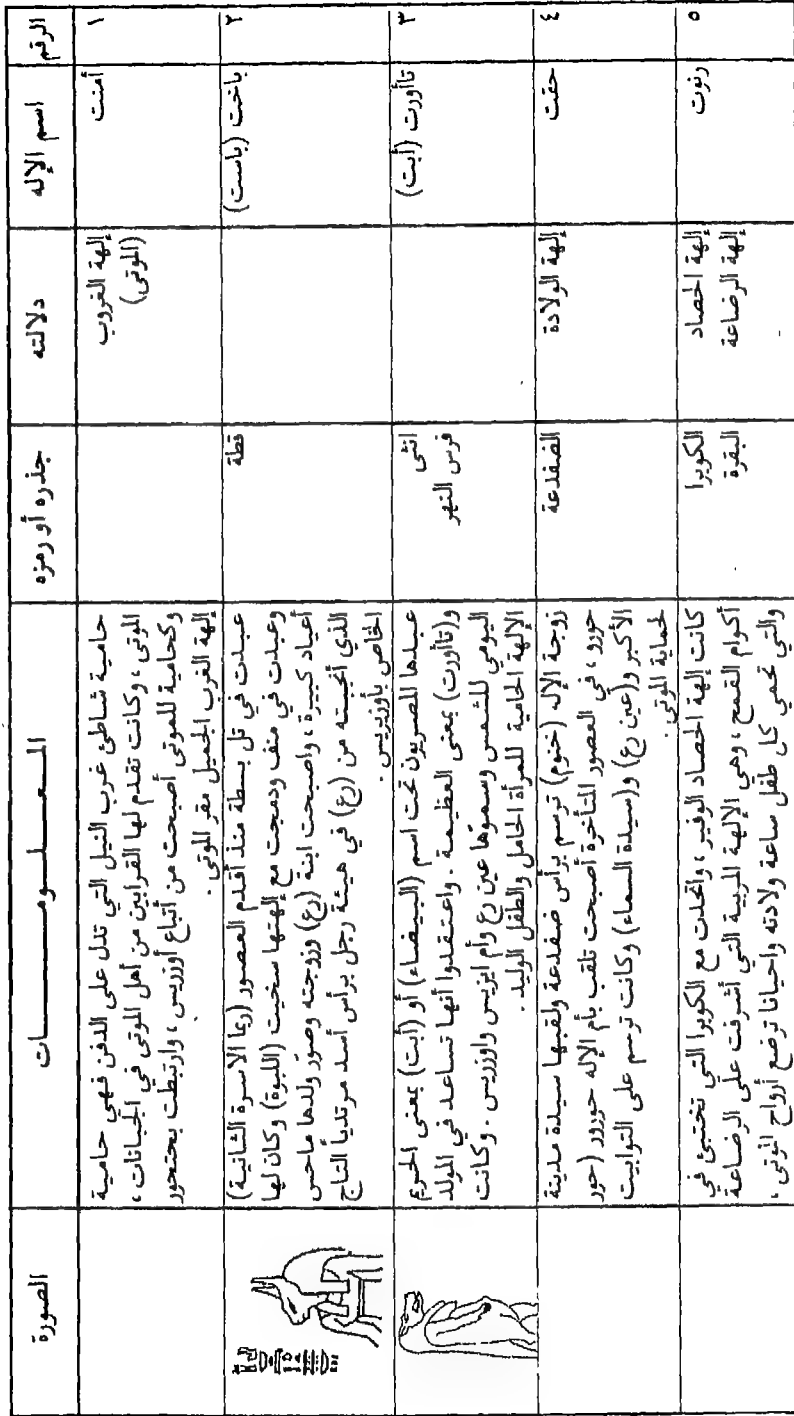 الرقم
اسم الإله
دلالته
جذره أو رمزه
المعلومات
الصورة
١
أمنت
إلهة الغروب
(الموتى)
حامية شاطئ غرب النيل التي تدل على الدفن فهي حامية
الموتى ، وكانت تقدم لها القرابين من أهل الموتى في الجبانات ،
وكحامية للموتى أصبحت من أتباع أوزريس ، وارتبطت بحتحور
إلهة الغرب الجميل مقر الموتى .
٢
باخت (باست)
قطة
عبدت في تل بسطة منذ أقدم العصور (ربما الاسرة الثانية)
وعبدت في منف ودمجت مع إلهتها سخيت (اللبوة) وكان لها
أعياد كبيرة ، واصبحت ابنة (رع) وزوجته وصور ولدها ماحس
الذي أنجبته من (رع) في هيئة رجل برأس أسد مرتدياً التاج
الخاص بأوزيريس .
٣
تاأورت (أبت)
انثى
فرس النهر
عبدها المصريون تحت اسم (البيضاء) أو (أبت) بمعنى الحريم
و(تاأورت) بمعنى العظيمة . واعتقدوا أنها تساعد في المولد
اليومي للشمس وسموها عين رع وأم ايزيس واوزريس . وكانت
الإلهة الحامية للمرأة الحامل والطفل الوليد .
٤
حقت
إلهة الولادة
الضفدعة
زوجة الإله (خنوم) ترسم برأس ضفدعة ولقبها سيدة مدينة
حورو ، في العصور المتأخرة أصبحت تلقب بأم الإله حورور (حور
الأكبر و(عين رع) و(سيدة السماء) وكانت ترسم على التوابيت
لحماية الموتى .
٥
رنوت
إلهة الحصاد
إلهة الرضاعة
الكوبرا
البقرة
كانت إلهة الحصاد الوفير ، واتحدت مع الكوبرا التي تختبئ في
أكوام القمح ، وهي الإلهة المربية التي أشرفت على الرضاعة
والتي تحمي كل طفل ساعة ولادته واحيانا ترضع أرواح الموتى ،